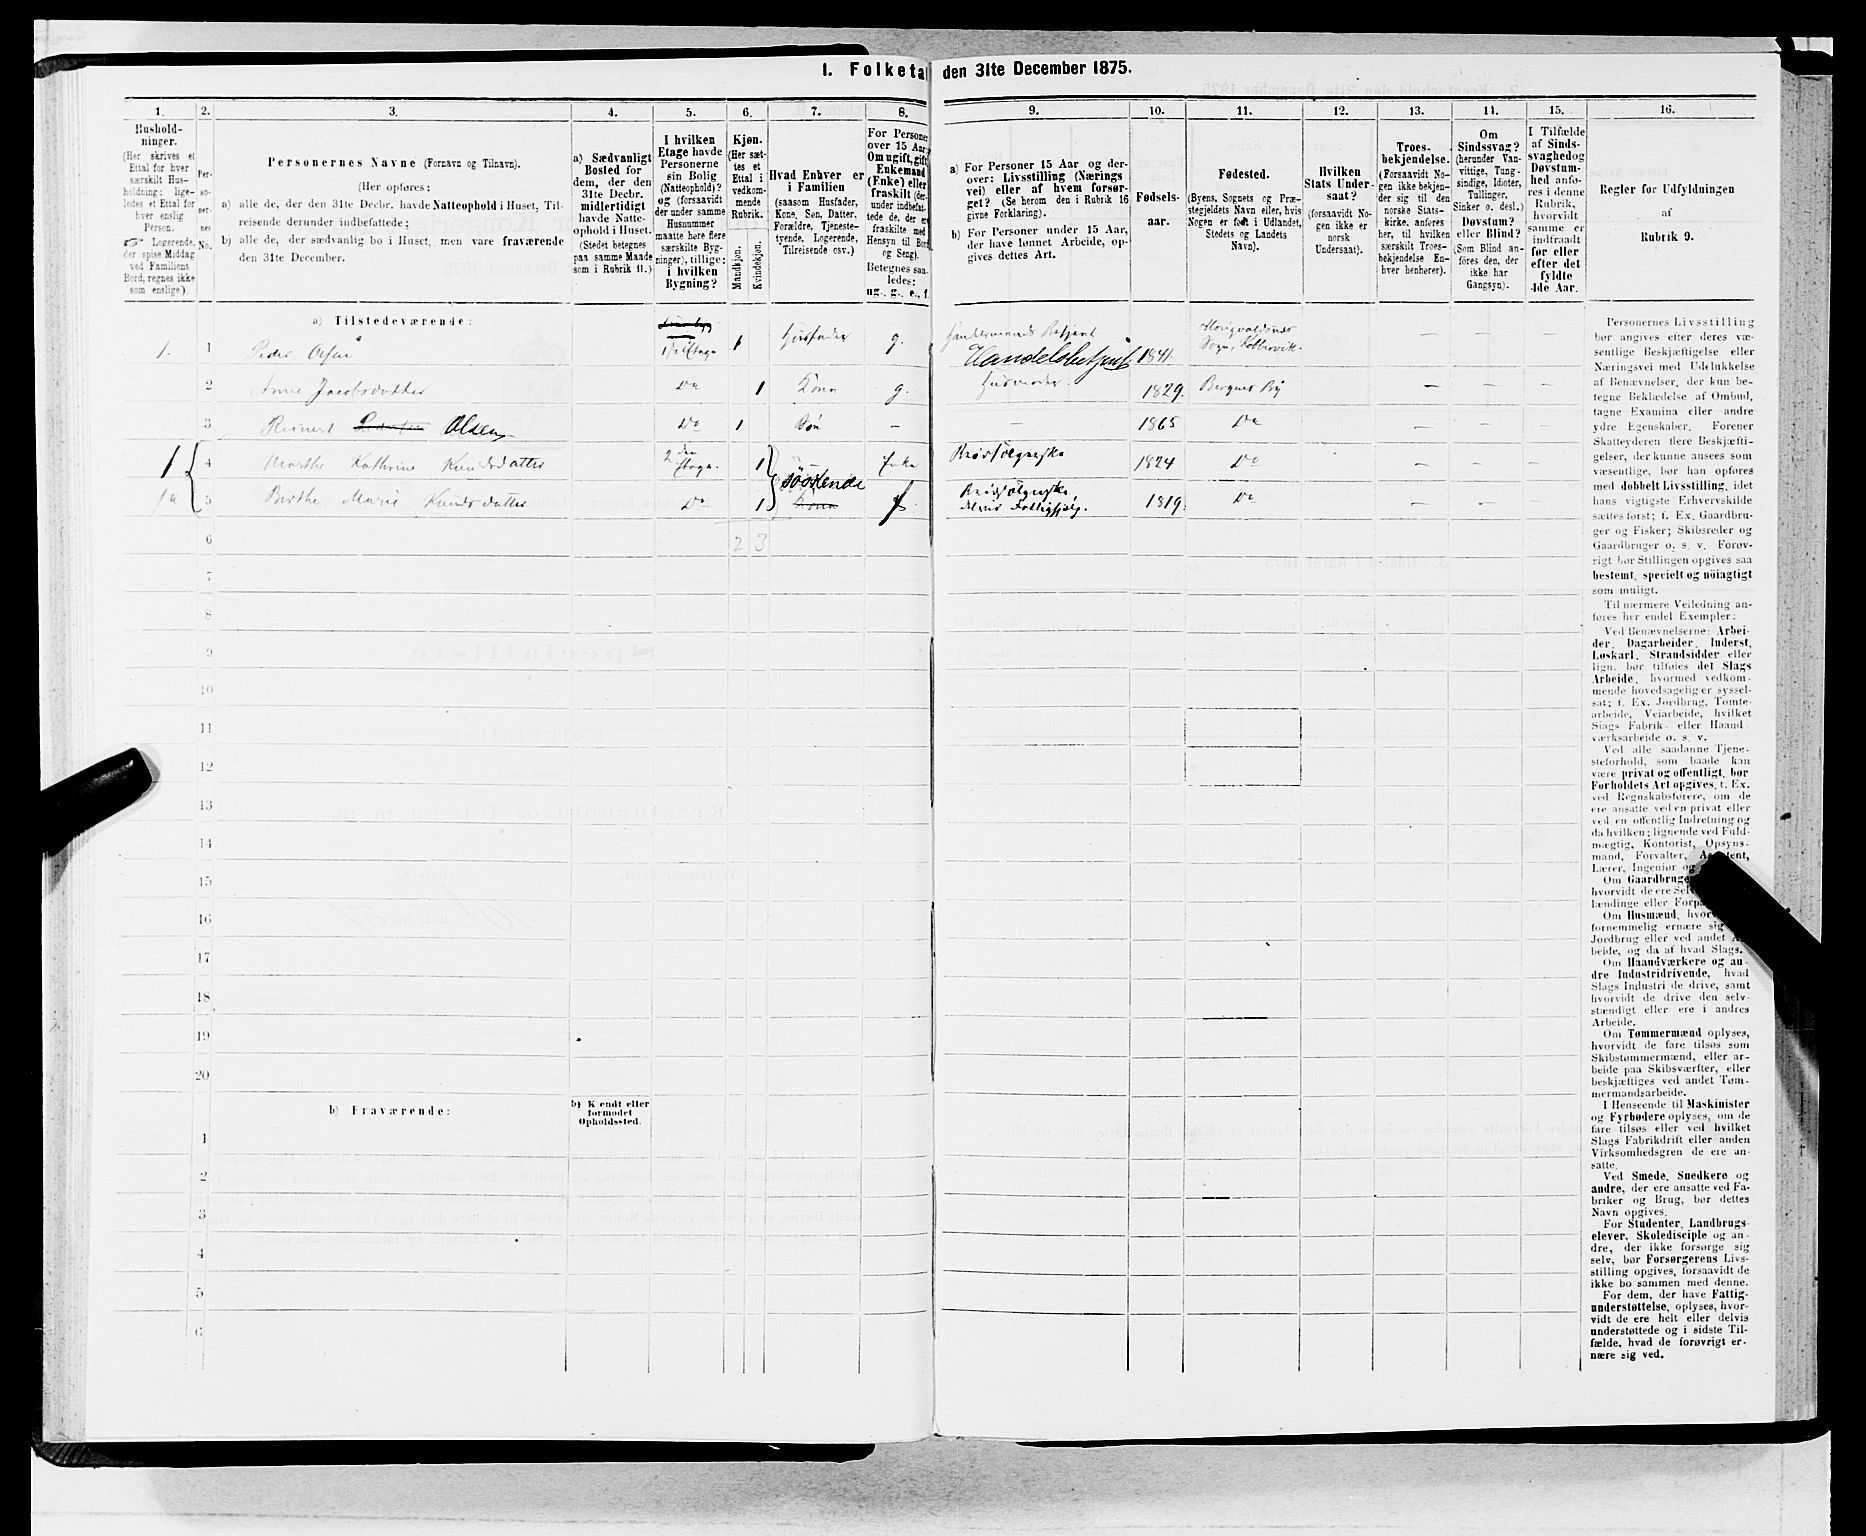 1. Folketal
den 31te December 1875.
1.
2.
3.
4.
5.
6.
7.
8.
9.
10.
11.
12.
13.
14.
15.
16.
Hushold-
ninger.
(Her skrives et
Ettal for hver
særskilt Hus-
holdning; lige-
ledes et Ettal for
hver enslig
Person.
☞ Logerende,
der spise Middag
ved Familiens
Bord, regnes ikke
som enslige)
Per-
so-
ner-
nes
No.
Personernes Navne (Fornavn og Tilnavn).
(Her opføres:
a) alle de, der den 31te Decbr. havde Natteophold i Huset, Til-
reisende derunder indbefattede;
b) alle de, der sædvanlig bo i Huset, men vare fraværende
den 31te December.
a) Sædvanligt
Bosted for
dem, der den
31te Decbr.
midlertidigt
havde Natte-
ophold i Huset.
(Stedet betegnes
paa samme Maade
som i Rubrik 11.)
I hvilken
Etage havde
Personerne
sin Bolig
(Natteophold)?
og (forsaavidt
der under samme
Husnummer
maatte høre flere
særskilte Byg-
ninger), tillige:
i hvilken
Bygning?
Kjøn.
(Her sæt-
tes et
Ettal i
vedkom-
mende
Rubrik.
Mandkjøn.
Kvindekjøn.
Hvad Enhver er
i Familien
(saasom Husfader,
Kone, Søn, Datter,
Forældre, Tjeneste-
tyende, Logerende,
Tilreisende osv.)
For Personer
over 15 Aar:
Om ugift, gift,
Enkemand
(Enke) eller
fraskilt (der-
under indbefat-
tede de, der er
fraskilte med
Hensyn til Bord
og Seng).
Betegnes saa-
ledes:
ug., g., e., f.
a) For Personer 15 Aar og der-
over: Livsstilling (Nærings
vei) eller af hvem forsør-
get? (Se herom den i Rubrik 16
givne Forklaring).
b) For Personer under 15 Aar,
der have lønnet Arbeide, op-
gives dettes Art.
Fødsels-
aar.
Fødested.
(Byens, Sognets og Præ-
stegjeldets Navn eller, hvis
Nogen er født i Udlandet,
Stedets og Landets
Navn).
Hvilken
Stats Under-
saat?
(forsaavidt No-
gen ikke er
norsk
Undersaat).
Troes-
bekjendelse.
(Forsaavidt No-
gen ikke bekjen-
der sig til den
norske Stats-
kirke, anføres
her, til hvilken
særskilt Troes-
bekjendelse En-
hver henhører).
Om
Sindssvag?
(herunder Van-
vittige, Tung-
sindige, Idioter,
Tullinger,
Sinker o. desl.)
Døvstum?
eller Blind?
(Som Blind an-
føres den, der
ikke har
Gangsyn).
I Tilfælde
af Sinds-
svaghed og
Døvstum-
hed anfø-
res i denne
Rubrik,
hvorvidt
samme er
indtraadt
før eller
efter det
fyldte
4de Aar.
Regler for Udfyldningen
af
Rubrik 9.
a) Tilstedeværende:
1. 1 Peder 1 g. Handelsbetjent 1841.
2 Anne Jacobsdatter Do 1 Kone g. Husmoder. 1829. Bergens By — —
3 Reinert Olsen Do 1 Søn — — 1865 Do — —
1 4 Marthe Kathrine Knudsdatter 2den Etage. 1 Enke 1824 Do — —
søskende
5 Berthe Marie Knudsdatter Do 1 Kone 1819. Do — —
6 2 3
7
8
9
10
11
12
13
14
15
16
17
18
19
20
b) Fraværende:
b) Kjendt eller
formodet
Opholdssted.
1
2
3
4
5
6
Personernes Livsstilling
bør angives efter deres væ-
sentlige Beskjæftigelse eller
Næringsvei med Udelukkelse
af Benævnelser, der kun be-
tegne Beklædelse af Ombud,
tagne Examina eller andre
ydre Egenskaber. Forener
Skatteyderen flere Beskjæfti-
gelser, der kunne ansees som
væsentlige, bør han opføres
med dobbelt Livsstilling, idet
hans vigtigste Erhvervskilde
sættes først; f. Ex. Gaardbru-
ger og Fisker; Skibsreder og
Gaardbruger o. s. v. Forøv-
rigt bør Stillingen opgives saa
bestemt, specielt og nøiagtigt
som muligt.
Til nærmere Veiledning an-
føres her endel Exempler:
Ved Benævnelserne: Arbei-
der, Dagarbeider, Inderst,
Løskarl, Strandsidder eller
lign. bør tilføies det Slags
Arbeide, hvormed vedkom-
mende hovedsagelig er syssel-
sat; f. Ex. Jordbrug, Tomte-
arbeide, Veiarbeide, hvilket
Slags Fabrik- eller Haand-
værksarbeide o. s. v.
Ved alle saadanne Tjene-
steforhold, som baade kan
være privat og offentligt, bør
Forholdets Art opgives, f. Ex.
ved Regnskabsførere, om de
ere ansatte ved en privat eller
ved en offentlig Indretning og
da hvilken; lignende ved Fuld-
mægtig, Kontorist, Opsyns-
mand, Forvalter,
Lærer, Ingeniør og
Om
hvorvidt de ere
lændinge eller
Om Husmænd,
fornemmelig ernære sig
Jordbrug eller ved andet
beide, og da af hvad Slags.
Om Haandværkere og an-
dre Industridrivende, hvad
Slags Industri de drive, samt
hvorvidt de drive den selv-
stændigt eller ere i andres
Arbeide.
Om Tømmermænd oplyses,
hvorvidt de fare tilsøs som
Skibstømmermænd, eller ar-
beide paa Skibsværfter, eller
beskjæftiges ved andet Tøm-
mermandsarbeide.
I Henseende til Maskinister
og Fyrbødere oplyses, om de
fare tilsøs eller ved hvilket
Slags Fabrikdrift eller anden
Virksomhedsgren de ere an-
satte.
Ved Smede, Snedkere og
andre, der ere ansatte ved Fa-
briker og Brug, bør dettes
Navn opgives.
For Studenter, Landbrugs-
elever, Skoledisciple og an-
dre, der ikke forsørge sig
selv, bør Forsørgerens Livs-
stilling opgives, forsaavidt de
ikke bo sammen med denne.
For dem, der have Fattig-
understøttelse, oplyses, hvor-
vidt de ere helt eller delvis
understøttede og i sidste Til-
fælde, hvad de forøvrigt er-
nære sig ved.